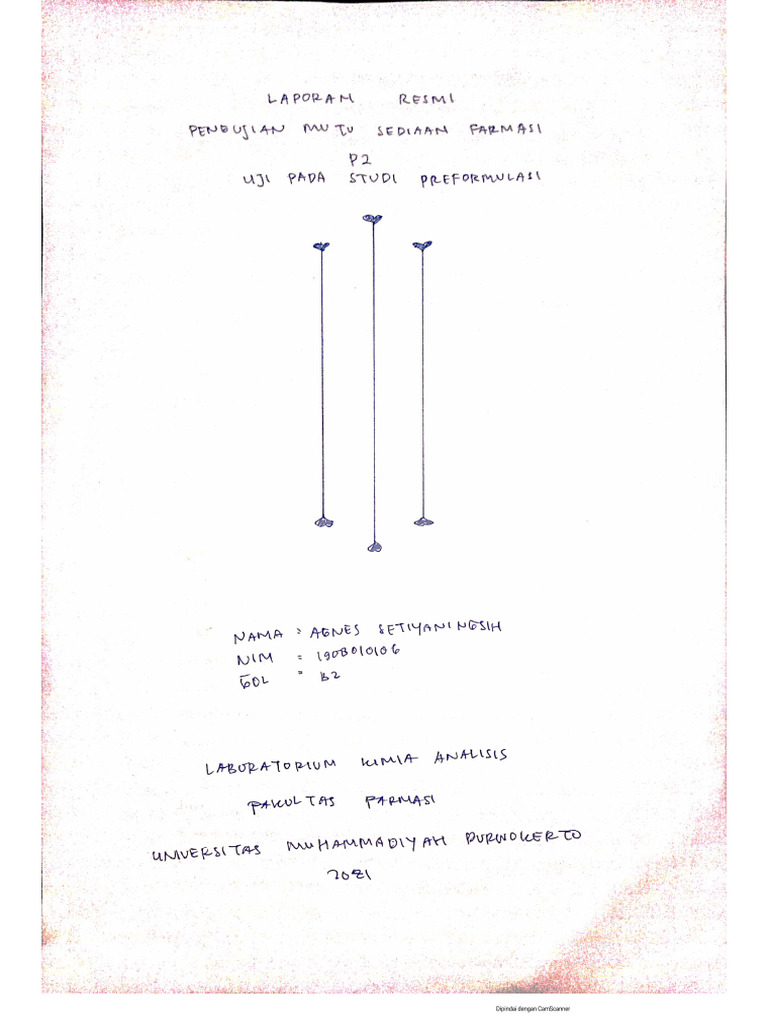 LAPORAN RESMI
PENGUJIAN MUTU SEDIAAN FARMASI
P2
UJI PADA STUDI PREFORMULASI
NAMA : AGNES SETIYANINGSIH
NIM : 1908010106
GOL : B2
LABORATORIUM KIMIA ANALISIS
FAKULTAS FARMASI
UNIVERSITAS MUHAMMADIYAH PURWOKERTO
2021
Dipindai dengan CamScanner